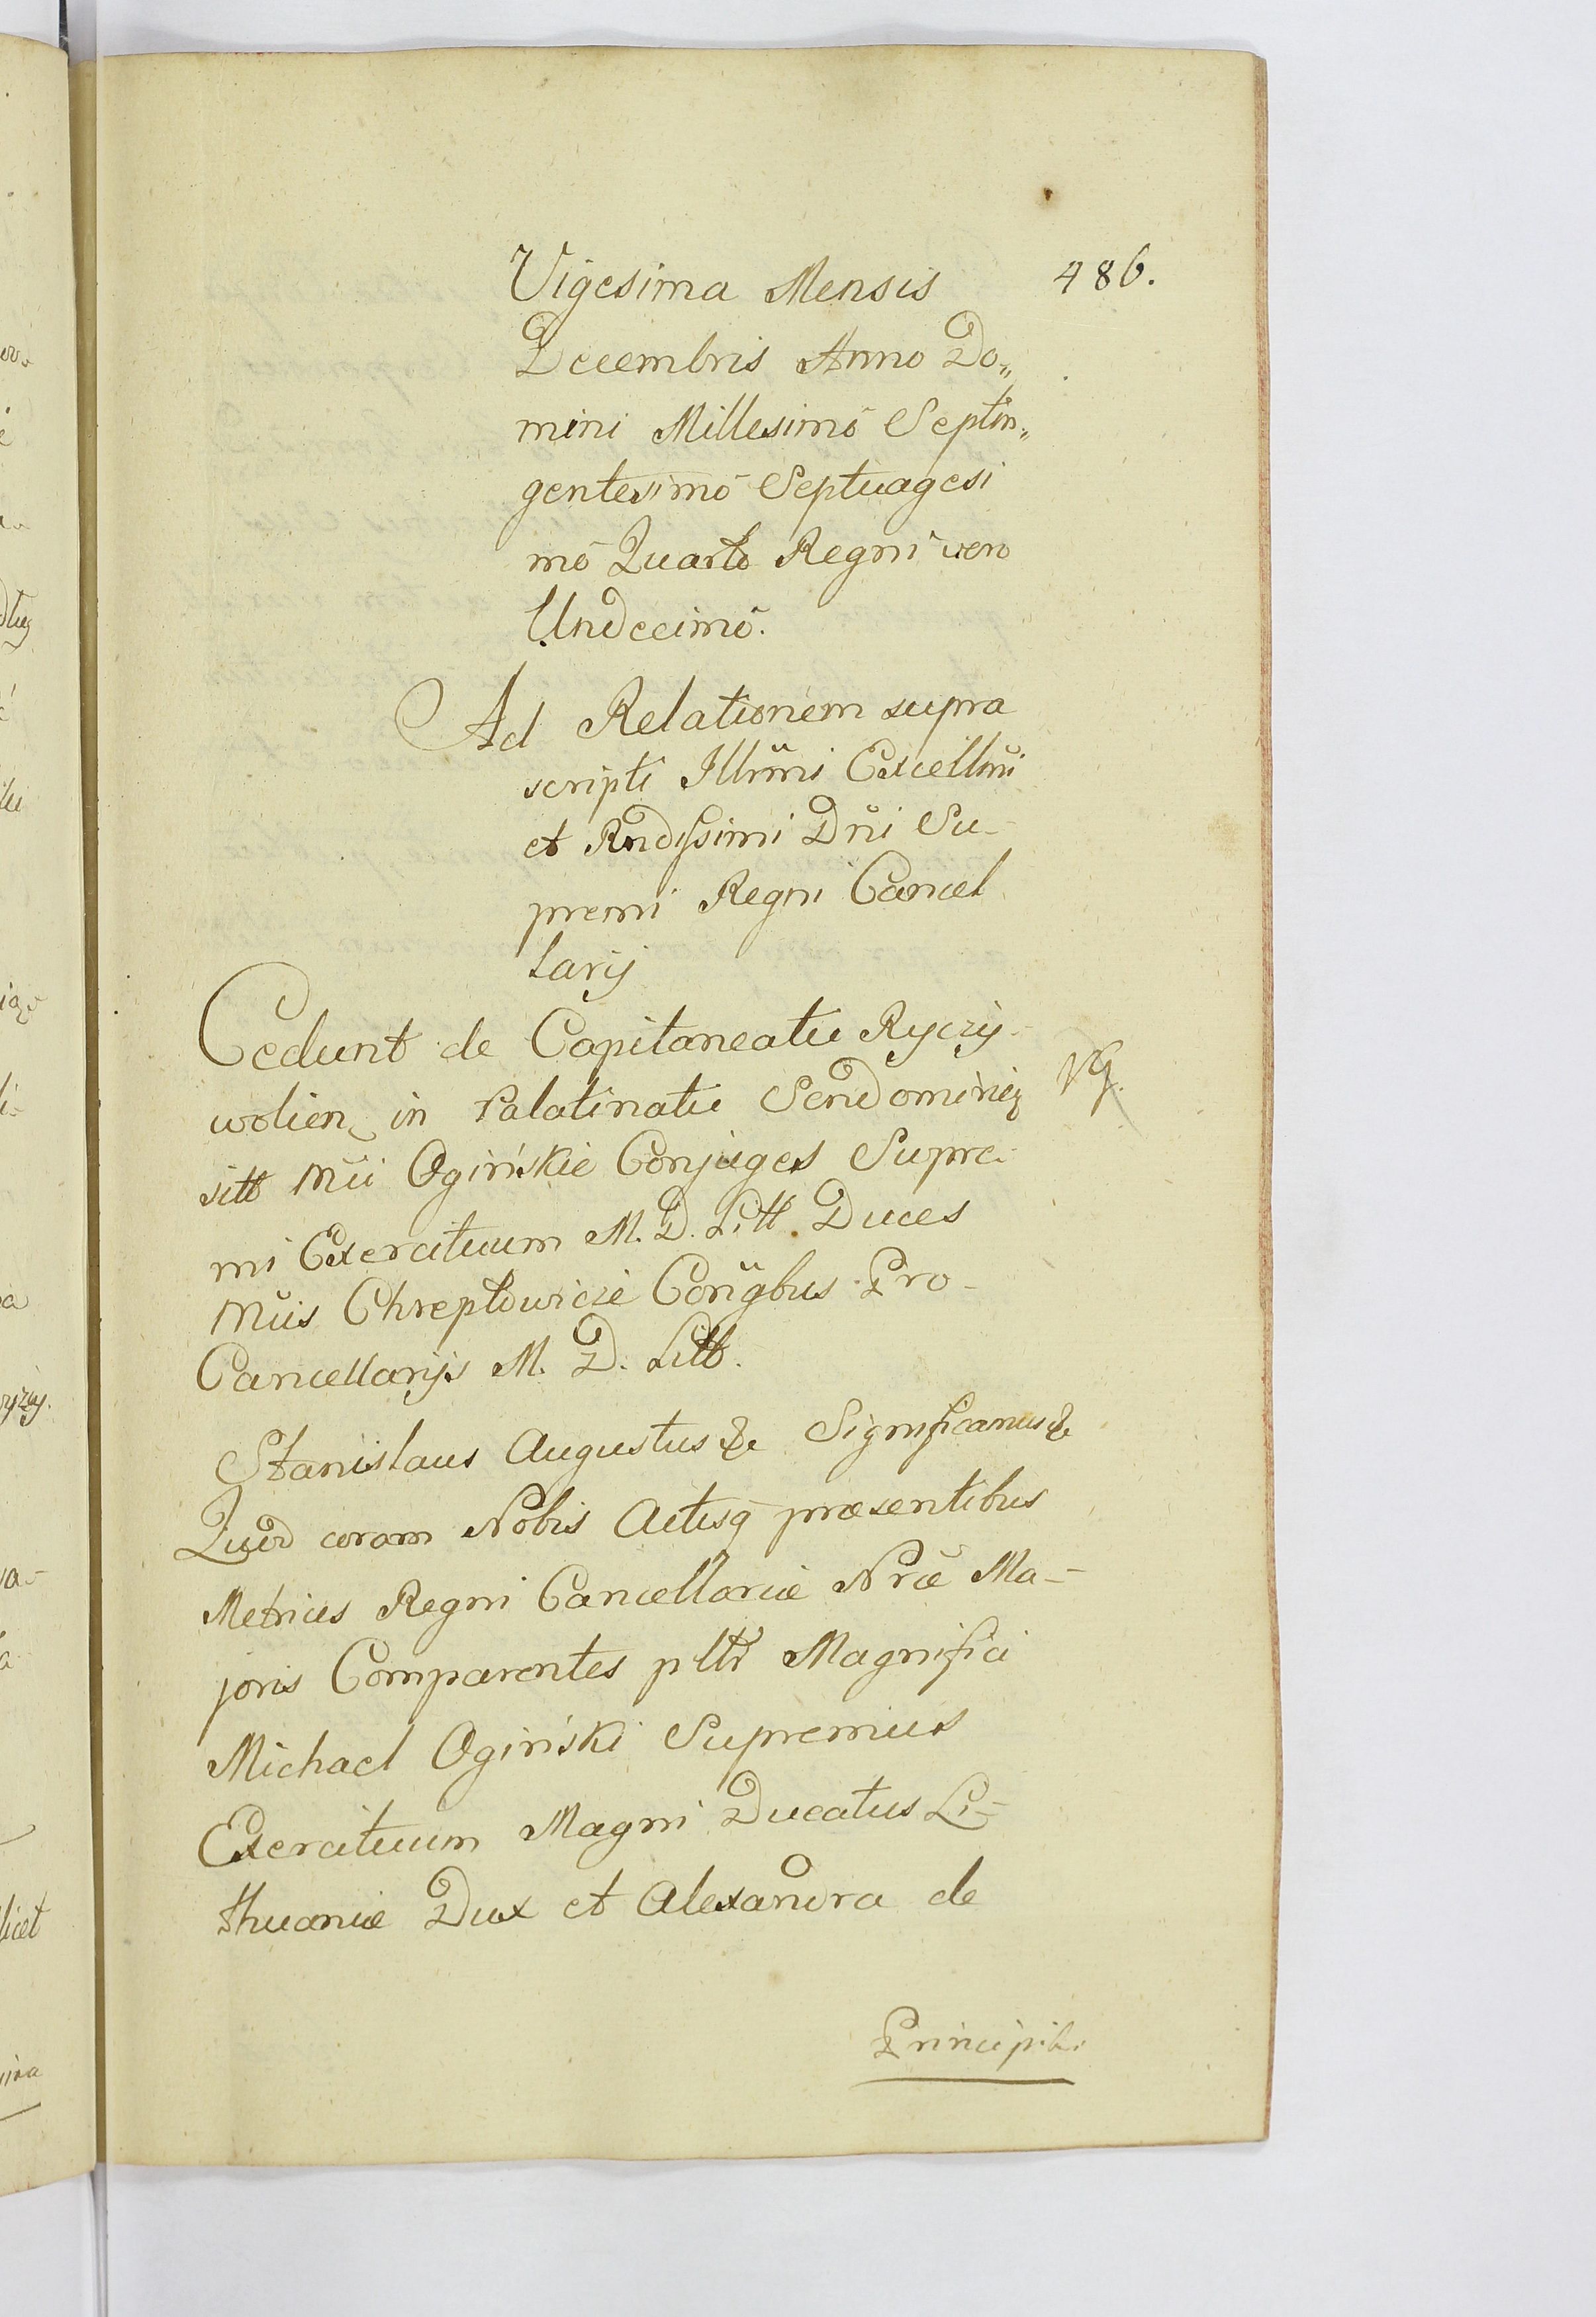 486.
Vigesima Mensis
Decembris Anno Do„
mini Millesimō Septin„
gentesimō Septuagesi
mō Quarto Regni vero
Undecimō.
Ad Relationem supra
scripti Illmi Excellmi
et Rndissimi Dñi Su-
premi Regni Cancel
larij
Cedunt de Capitaneatu Ryczy-
wolien in Palatinatu Sendomirien
sitt Mci Ogińskie Conjuges Supre-
mi Exercituum M. D. Litt. Duces
Mcis Chreptowicze Conjgbus Pro-
Cancellarijs M. D. Litt.
Stanislaus Augustus &c Significamus &c
Quod coram Nobis Actisq præsentibus
Metrices Regni Cancellariæ Nræ Ma-
joris Comparentes pltr Magnifici
Michael Ogiński Supremus
Exercituum Magni Ducatus Li-
thuaniæ Dux et Alexandra de